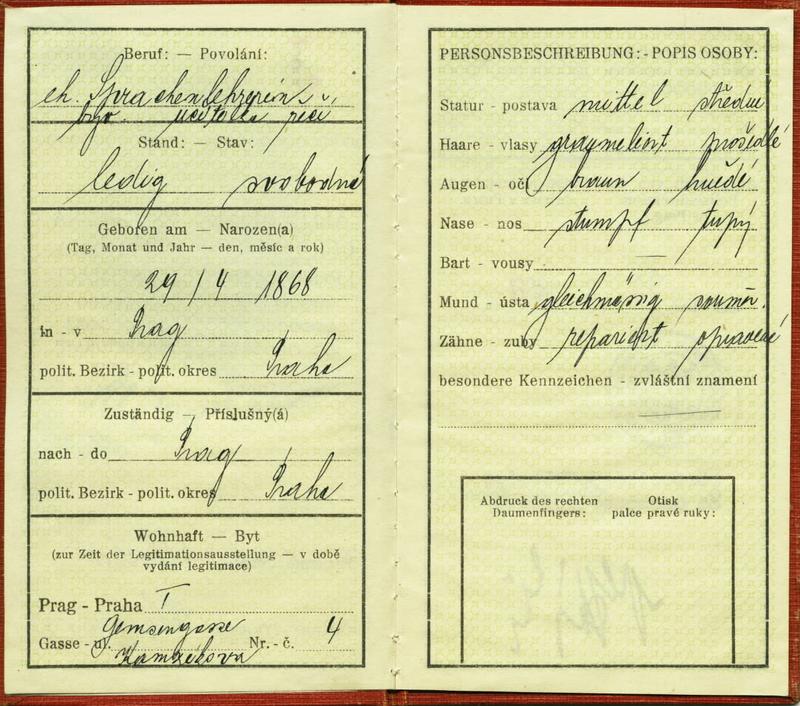 Beruf: — Povolání:
eh. Sprachenlehrerin
býv. učitelka řečí
Stand: — Stav:
ledig svobodná
Geboren am — Narozen(a)
(Tag, Monat und Jahr — den, měsíc a rok)
29 / 4 1868
in - v Prag
polit. Bezirk - polit. okres Praha
Zuständig — Příslušný(á)
nach - do Prag
polit. Bezirk - polit. okres Praha
Wohnhaft — Byt
(zur Zeit der Legitimationsausstellung — v době
vydání legitimace)
Prag - Praha I
Gemsengasse
Gasse - ul. Nr. - č. 4
Kamzíkova
PERSONSBESCHREIBUNG: - POPIS OSOBY:
Statur - postava mittel střední
Haare - vlasy graumeliert prošedlé
Augen - oči braun hnědé
Nase - nos stumpf tupý
Bart - vousy —
Mund - ústa gleichmässig souměr.
Zähne - zuby repariert opravené
besondere Kennzeichen - zvláštní znamení
—
Abdruck des rechten Otisk
Daumenfingers: palce pravé ruky: